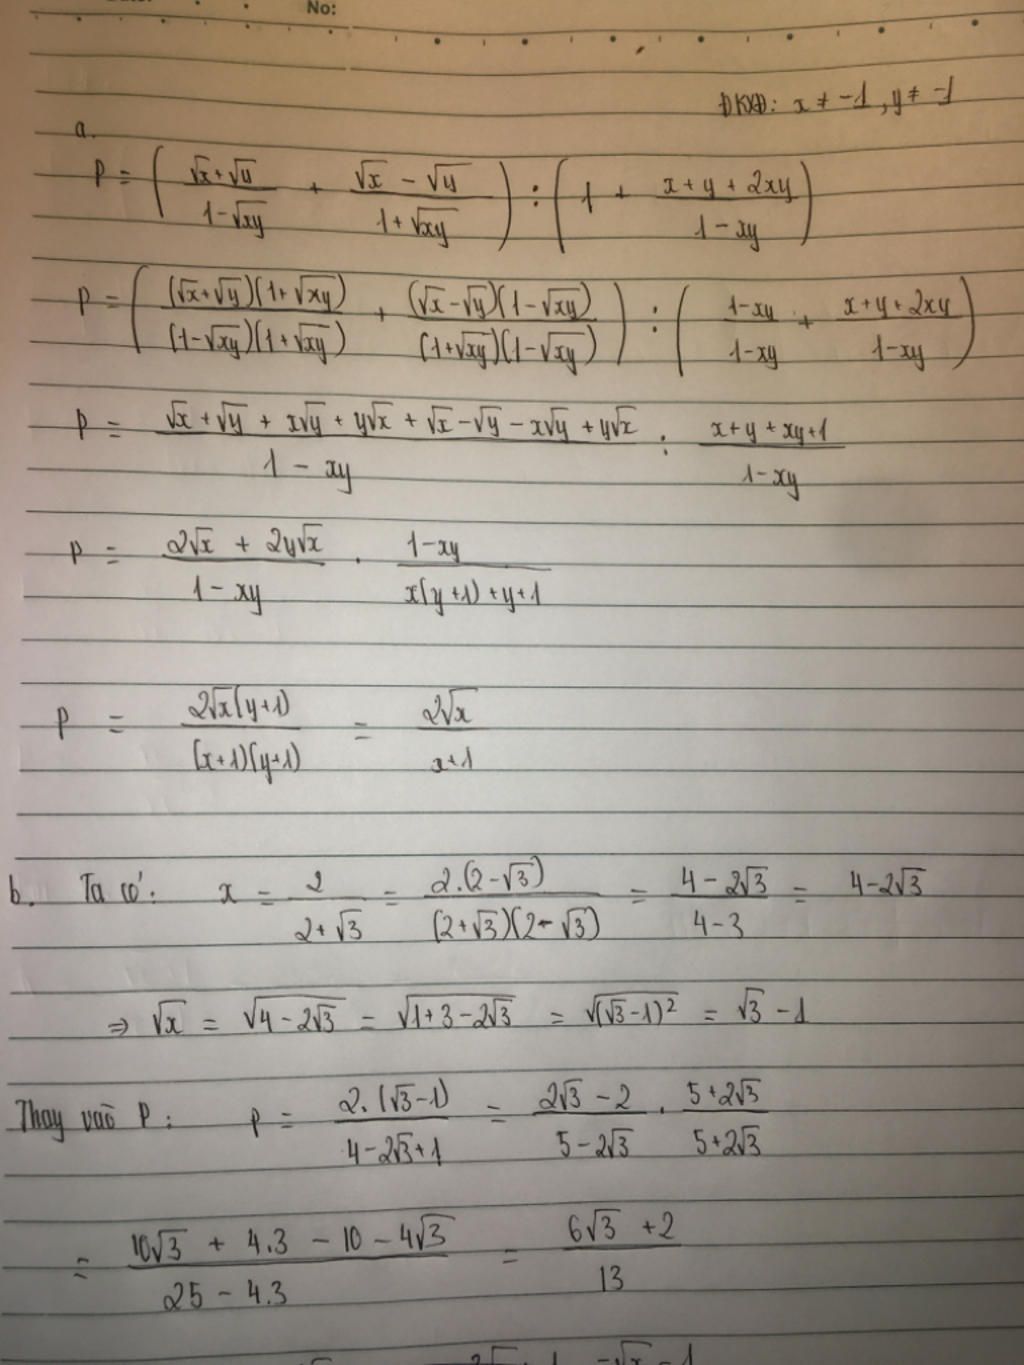 No:
ĐKXĐ: x ≠ -1, y ≠ -1
a.
P = ( (√x+√y)/(1-√xy) + (√x - √y)/(1+√xy) ) : ( 1 + (x+y+2xy)/(1-xy) )
P = ( (√x+√y)(1+√xy)/(1-√xy)(1+√xy) + (√x-√y)(1-√xy)/(1+√xy)(1-√xy) ) : ( (1-xy)/(1-xy) + (x+y+2xy)/(1-xy) )
P = (√x+√y + x√y + y√x + √x-√y - x√y + y√x)/(1-xy) : (x+y+xy+1)/(1-xy)
P = (2√x + 2y√x)/(1-xy) . (1-xy)/(x(y+1)+y+1)
P = 2√x(y+1)/(x+1)(y+1) = 2√x/(x+1)
b. Ta có: x = 2/(2+√3) = 2.(2-√3)/(2+√3)(2-√3) = (4-2√3)/(4-3) = 4-2√3
⇒ √x = √(4-2√3) = √(1+3-2√3) = √((√3-1)²) = √3 - 1
Thay vào P: P = 2.(√3-1)/(4-2√3+1) = (2√3-2)/(5-2√3) . (5+2√3)/(5+2√3)
= (10√3 + 4.3 - 10 - 4√3)/(25-4.3) = (6√3+2)/13